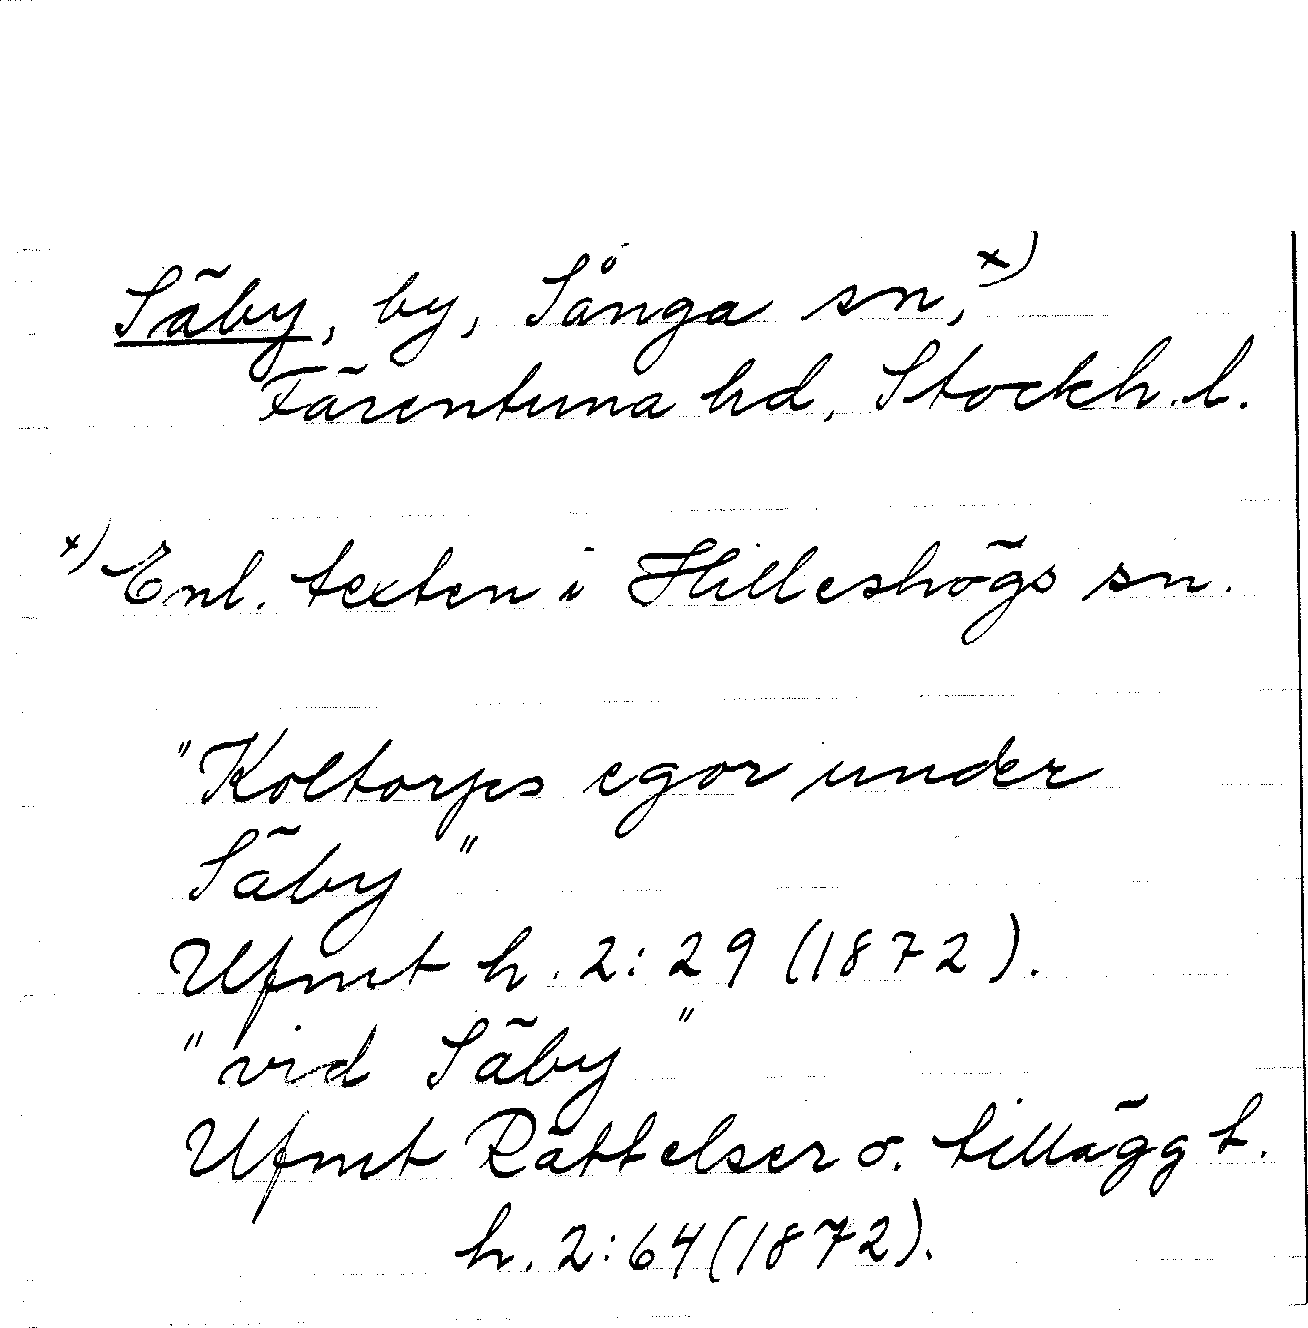 Säby, by, Sånga sn, x)
Färentuna hd, Stockh. l.
x) Enl. texten i Hilleshögs sn.
"Koltorps egor under
Säby"
Ufmt h. 2:29 (1872).
"vid Säby"
Ufmt Rättelser o. tillägg t.
h. 2:64 (1872).